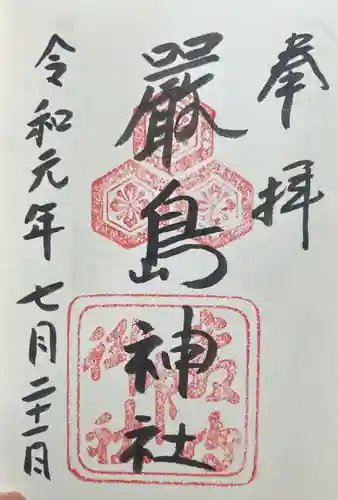 奉拝
嚴島神社
令和元年七月二十一日